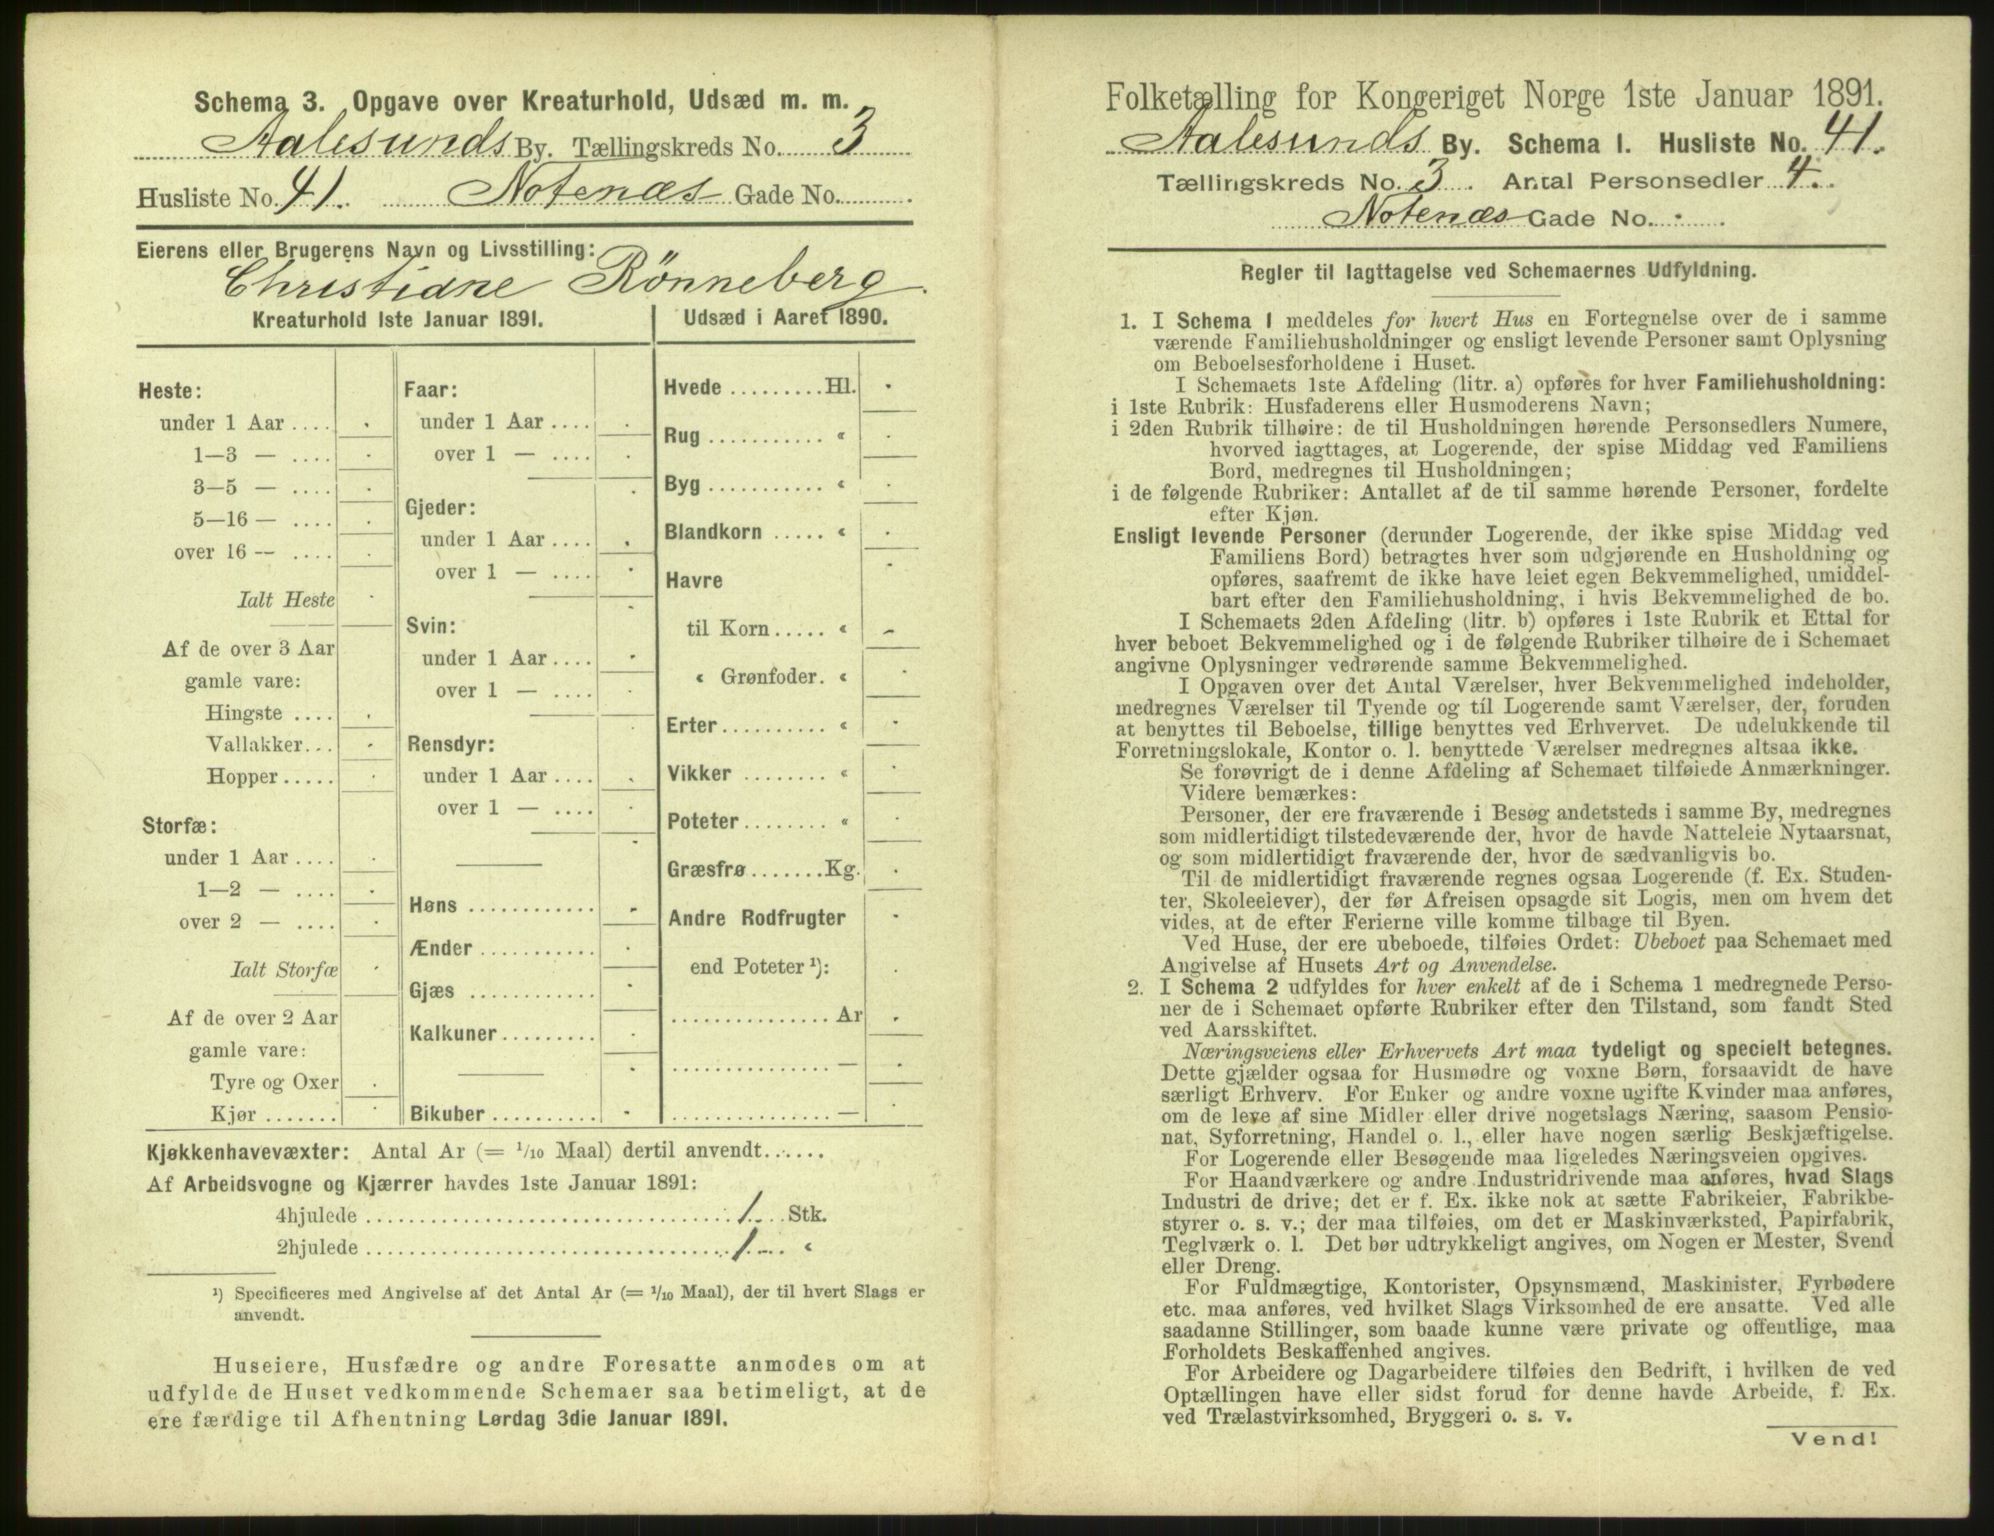 Schema 3. Opgave over Kreaturhold, Udsæd m. m.
Aalesunds By. Tællingskreds No. 3
Husliste No. 41. Notenæs Gade No.
Eierens eller Brugerens Navn og Livsstilling:
Christiane Rönneberg.
Kreaturhold 1ste Januar 1891.
Heste:
under 1 Aar ....
1—3 — ....
3—5 — ....
5—16 — ....
over 16 — ....
Ialt Heste
Af de over 3 Aar
gamle vare:
Hingste ....
Vallakker...
Hopper.....
Storfæ:
under 1 Aar ....
1—2 — ....
over 2 — ....
Ialt Storfæ
Af de over 2 Aar
gamle vare:
Tyre og Oxer
Kjør.......
Faar:
under 1 Aar ....
over 1 — ....
Gjeder:
under 1 Aar ....
over 1 — ....
Svin:
under 1 Aar ....
over 1 — ....
Rensdyr:
under 1 Aar ....
over 1 — ....
Høns ............
Ænder ...........
Gjæs ............
Kalkuner.........
Bikuber..........
Udsæd i Aaret 1890.
Hvede .........Hl.
Rug ........... «
Byg ........... «
Blandkorn ..... «
Havre
til Korn..... «
« Grønfoder. «
Erter......... «
Vikker ........ «
Poteter........ «
Græsfrø.......Kg.
Andre Rodfrugter
end Poteter ¹):
............... Ar
............... —
............... —
Kjøkkenhavevæxter: Antal Ar (= 1/10 Maal) dertil anvendt......
Af Arbeidsvogne og Kjærrer havdes 1ste Januar 1891:
4hjulede ........ 1 Stk.
2hjulede ........ 1 «
¹) Specificeres med Angivelse af det Antal Ar (= 1/10 Maal), der til hvert Slags er
anvendt.
Huseiere, Husfædre og andre Foresatte anmodes om at
udfylde de Huset vedkommende Schemaer saa betimeligt, at de
ere færdige til Afhentning Lørdag 3die Januar 1891.
Folketælling for Kongeriget Norge 1ste Januar 1891.
Aalesunds By. Schema 1. Husliste No. 41.
Tællingskreds No. 3. Antal Personsedler 4.
Notenæs Gade No.
Regler til Iagttagelse ved Schemaernes Udfyldning.
1. I Schema 1 meddeles for hvert Hus en Fortegnelse over de i samme
værende Familiehusholdninger og ensligt levende Personer samt Oplysning
om Beboelsesforholdene i Huset.
I Schemaets 1ste Afdeling (litr. a) opføres for hver Familiehusholdning:
i 1ste Rubrik: Husfaderens eller Husmoderens Navn;
i 2den Rubrik tilhøire: de til Husholdningen hørende Personsedlers Numere,
hvorved iagttages, at Logerende, der spise Middag ved Familiens
Bord, medregnes til Husholdningen;
i de følgende Rubriker: Antallet af de til samme hørende Personer, fordelte
efter Kjøn.
Ensligt levende Personer (derunder Logerende, der ikke spise Middag ved
Familiens Bord) betragtes hver som udgjørende en Husholdning og
opføres, saafremt de ikke have leiet egen Bekvemmelighed, umiddel-
bart efter den Familiehusholdning, i hvis Bekvemmelighed de bo.
I Schemaets 2den Afdeling (litr. b) opføres i 1ste Rubrik et Ettal for
hver beboet Bekvemmelighed og i de følgende Rubriker tilhøire de i Schemaet
angivne Oplysninger vedrørende samme Bekvemmelighed.
I Opgaven over det Antal Værelser, hver Bekvemmelighed indeholder,
medregnes Værelser til Tyende og til Logerende samt Værelser, der, foruden
at benyttes til Beboelse, tillige benyttes ved Erhvervet. De udelukkende til
Forretningslokale, Kontor o. l. benyttede Værelser medregnes altsaa ikke.
Se forøvrigt de i denne Afdeling af Schemaet tilføiede Anmærkninger.
Videre bemærkes:
Personer, der ere fraværende i Besøg andetsteds i samme By, medregnes
som midlertidigt tilstedeværende der, hvor de havde Natteleie Nytaarsnat,
og som midlertidigt fraværende der, hvor de sædvanligvis bo.
Til de midlertidigt fraværende regnes ogsaa Logerende (f. Ex. Studen-
ter, Skoleelever), der før Afreisen opsagde sit Logis, men om hvem det
vides, at de efter Ferierne ville komme tilbage til Byen.
Ved Huse, der ere ubeboede, tilføies Ordet: Ubeboet paa Schemaet med
Angivelse af Husets Art og Anvendelse.
2. I Schema 2 udfyldes for hver enkelt af de i Schema 1 medregnede Perso-
ner de i Schemaet opførte Rubriker efter den Tilstand, som fandt Sted
ved Aarsskiftet.
Næringsveiens eller Erhvervets Art maa tydeligt og specielt betegnes.
Dette gjælder ogsaa for Husmødre og voxne Børn, forsaavidt de have
særligt Erhverv. For Enker og andre voxne ugifte Kvinder maa anføres,
om de leve af sine Midler eller drive nogetslags Næring, saasom Pensio-
nat, Syforretning, Handel o. l., eller have nogen særlig Beskjæftigelse.
For Logerende eller Besøgende maa ligeledes Næringsveien opgives.
For Haandværkere og andre Industridrivende maa anføres, hvad Slags
Industri de drive; det er f. Ex. ikke nok at sætte Fabrikeier, Fabrikbe-
styrer o. s. v.; der maa tilføies, om det er Maskinværksted, Papirfabrik,
Teglværk o. l. Det bør udtrykkeligt angives, om Nogen er Mester, Svend
eller Dreng.
For Fuldmægtige, Kontorister, Opsynsmænd, Maskinister, Fyrbødere
etc. maa anføres, ved hvilket Slags Virksomhed de ere ansatte. Ved alle
saadanne Stillinger, som baade kunne være private og offentlige, maa
Forholdets Beskaffenhed angives.
For Arbeidere og Dagarbeidere tilføies den Bedrift, i hvilken de ved
Optællingen have eller sidst forud for denne havde Arbeide, f. Ex.
ved Trælastvirksomhed, Bryggeri o. s. v.
Vend!